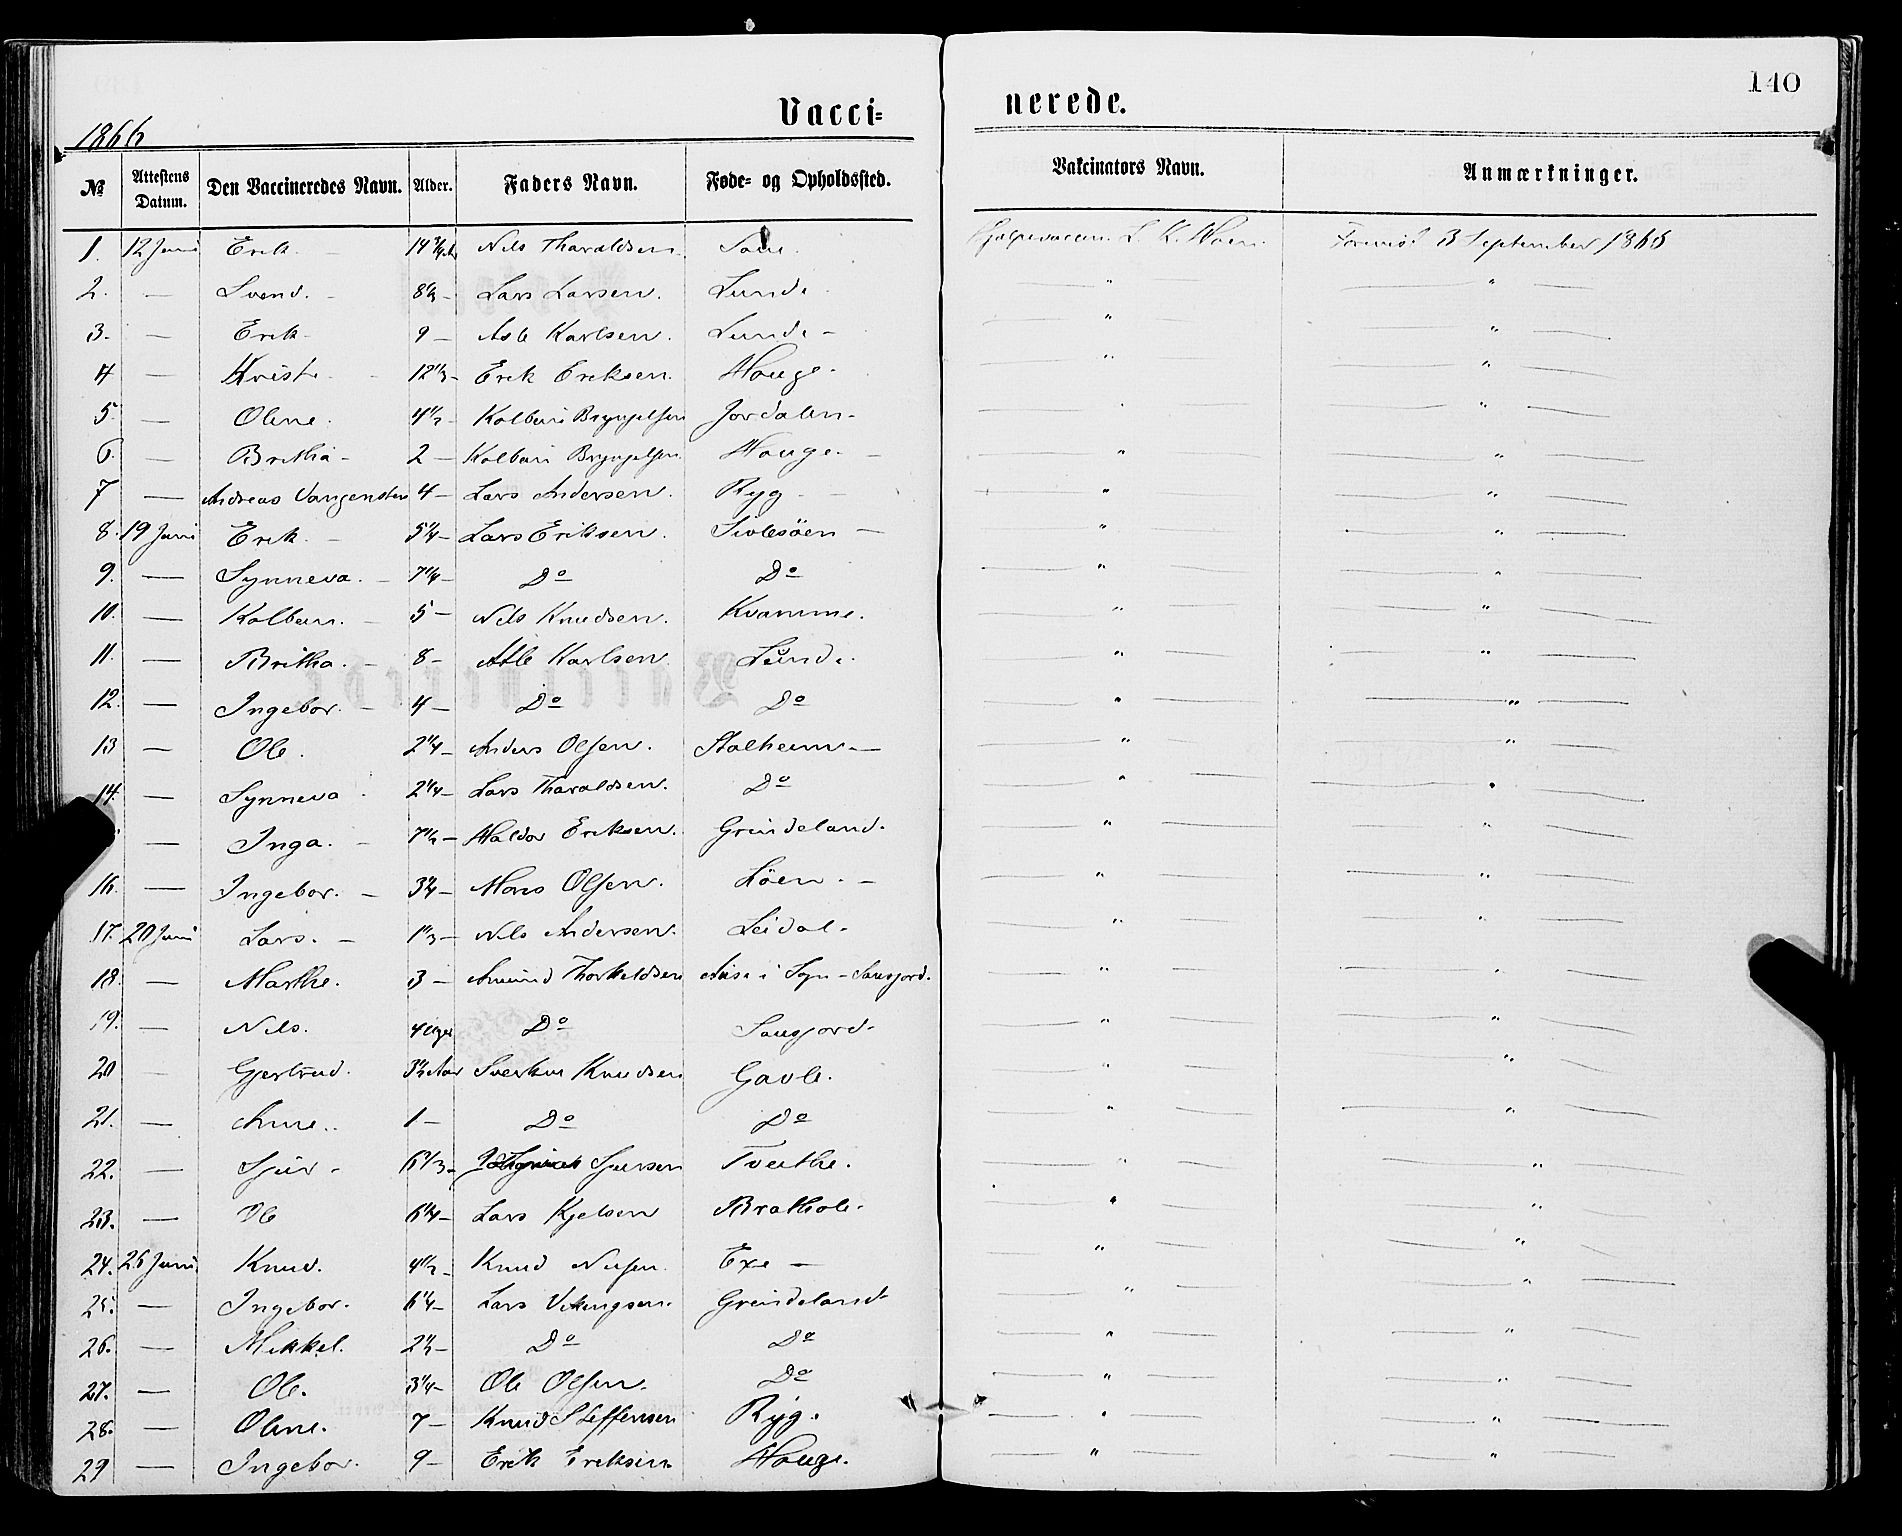 140
Vacci= nerede.
1866
№ Attestens Datum. Den Vaccineredes Navn. Alder. Faders Navn. Føde= og Opholdssted. Vakcinators Navn. Anmærkninger.
1. 12 Juni Erik. Nils Tharaldsen. Hjælpevaccin. L. K. September 1866
2. — Svend. — Lars Larsen. Lunde — " — — " —
3. — Erik. 9 — Asle Karlsen. Lunde — — " — — " —
4 — Kristi. 12 1/3 — Erik Eriksen. Houge. — " — — " —
5. — Olene. 4 1/2 — Kolbein Bryngelsen Jordalen — — " — — " —
6. — Britha — 2 — Kolbein Bryngelsen Houge. — — " — — " —
7 — Andreas Vangensten 4 — Lars Andersen. Ryg — — " — — " —
8. 19 Juni Erik — 5 1/4 — Lars Eriksen. Sivlesöen — — " — — " —
9. — Synneva. — 7 1/4 — Do Do — " — — " —
10. — Kolbein. — 5 — Nils Knudsen. Kvamme. — " — — " —
11. — Britha. — 8 — Atle Karlsen Lunde. — " — — " —
12. — Ingebor. — 4 — Do Do — " — — " —
13 — Ole. 2 1/4 — Anders Olsen. Stalheim — — " — — " —
14. — Synneva 2 1/4 — Lars Tharaldsen. Do — " — — " —
— Inga. — 7 1/2 — Haldor Eriksen. Grindeland. — " — — " —
16. — Ingebor. — 3 1/4 — Mons Olsen. Löen. — — " — — " —
17. 20 Juni Lars. — 1 1/3 — Nils Andersen. Leidal. — " — — " —
18. — Marthe. 3 — Amund Thorkeldsen i Sogn — — " — — " —
19. — Nils. 4 Uger Do — " — — " —
20 — Gjertrud. 3 1/2 Aar Sverkur Knudsen Gavle. — " — — " —
21. — Anne. 1 — Do Do — " — — " —
22. — Sjur — 6 1/3 — Sjursen Tveithe. — " — — " —
23. — Ole 6 1/4 — Lars Kjelsen Brathole. — " — — " —
24. 26 Juni Knud. 4 1/2 — Knud Nilsen. Exe — — " — — " —
25. — Ingebor. 6 1/4 — Lars Vikingsen. Grindeland — " — — " —
26. — Mikkel. 2 1/2 — Do Do — " — — " —
27. — Ole. 3 1/4 — Ole Olsen. Do — " — — " —
28. — Olene. 7 — Knud Steffensen Ryg. — " — — " —
29 — Ingebor. 9 — Erik Eriksen Houge. — " — — " —